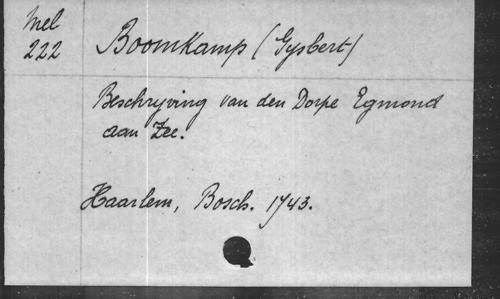 Mel
222
Boomkamp (Gysbert)
Beschryving van den Dorpe Egmond
aan Zee.
Haarlem, Bosch. 1743.